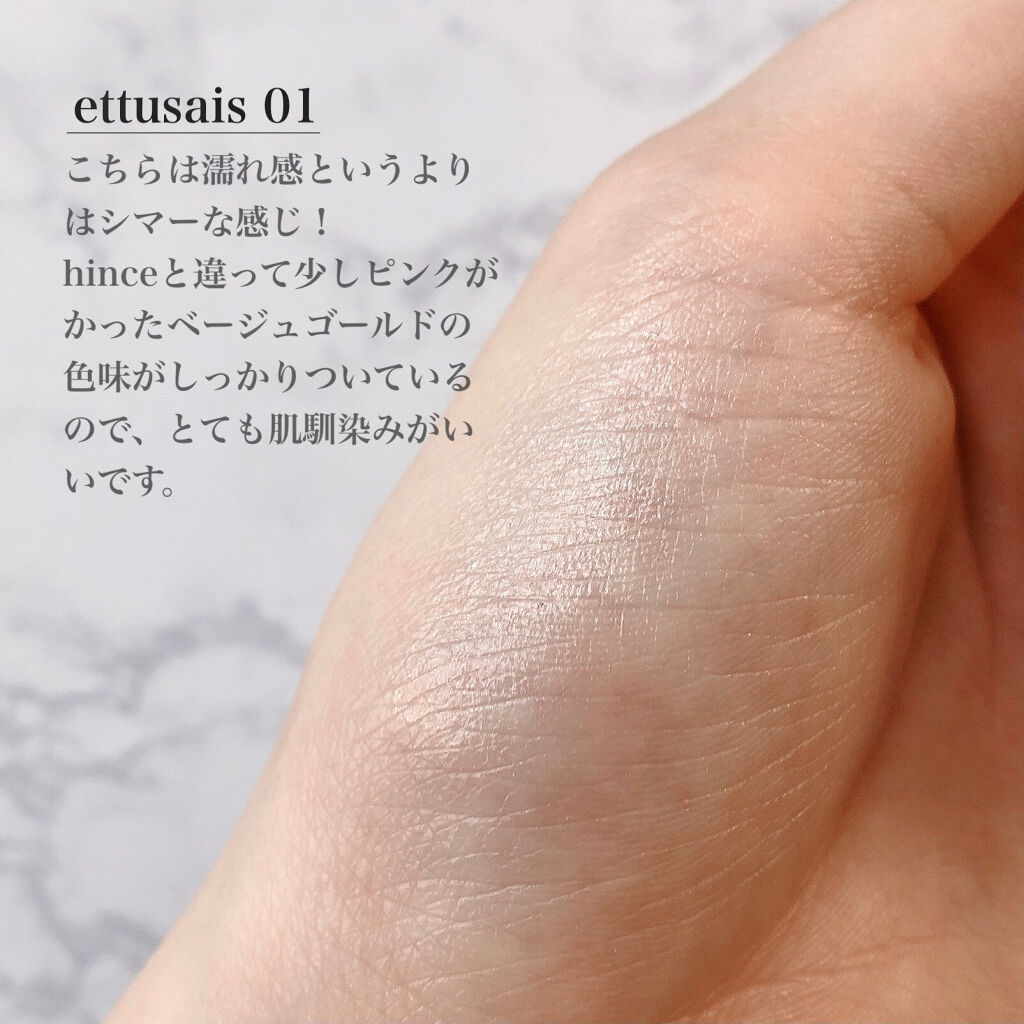 ettusais 01
こちらは濡れ感というより
はシマーな感じ！
hinceと違って少しピンクが
かったベージュゴールドの
色味がしっかりついている
ので、とても肌馴染みがい
いです。